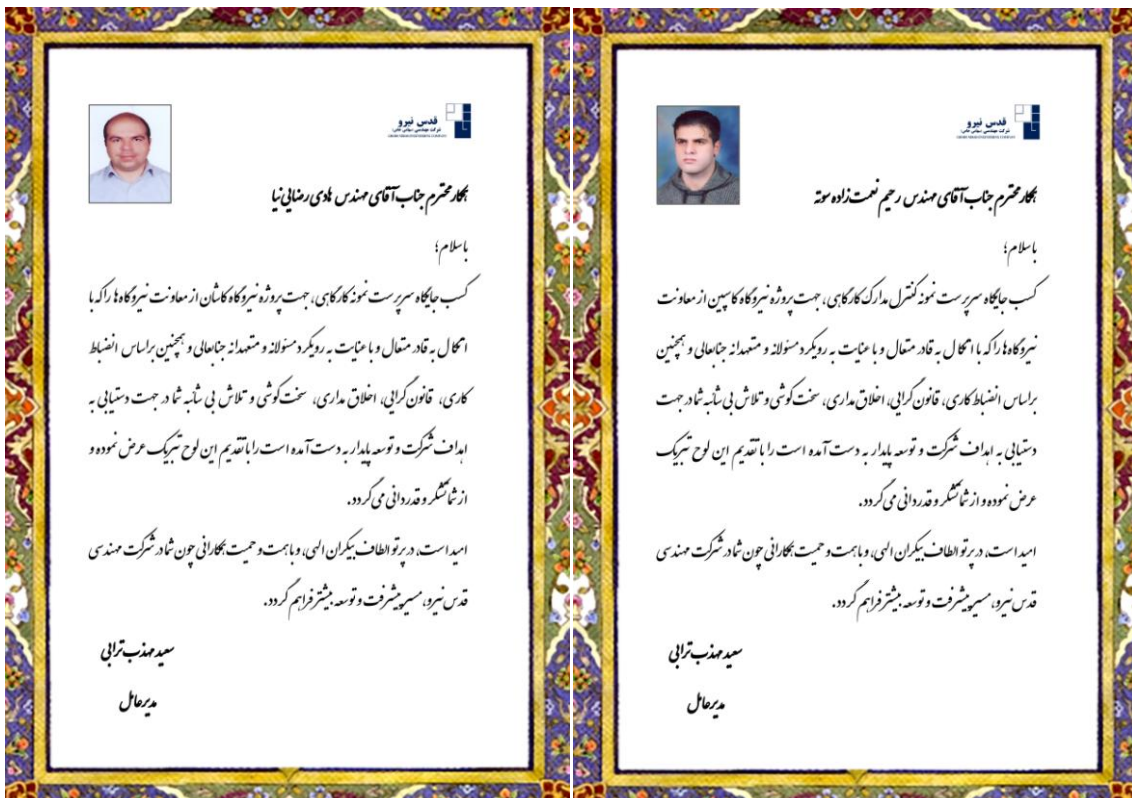 قدس نیرو
شرکت مهندسی (سهامی خاص)
همکار محترم جناب آقای مهندس هادی رضایی نیا
باسلام؛
کسب جایگاه سرپرست نمونه کارگاهی، جهت پروژه نیروگاه کاشان از معاونت نیروگاه ها را که با
اتکال به قادر متعال و با عنایت به رویکرد مسئولانه و متعهدانه جنابعالی و همچنین براساس انضباط
کاری، قانون گرایی، اخلاق مداری، سخت کوشی و تلاش بی شائبه شما در جهت دستیابی به
اهداف شرکت و توسعه پایدار به دست آمده است را با تقدیم این لوح تبریک عرض نموده و
از شما تشکر و قدردانی می گردد.
امید است، در پرتو الطاف بیکران الهی، و با همت و حمیت همکارانی چون شما در شرکت مهندسی
قدس نیرو، مسیر پیشرفت و توسعه بیشتر فراهم گردد.
سعید مهذب ترابی
مدیرعامل
قدس نیرو
شرکت مهندسی (سهامی خاص)
همکار محترم جناب آقای مهندس رحیم نعمت زاده سوته
باسلام؛
کسب جایگاه سرپرست نمونه کنترل مدارک کارگاهی، جهت پروژه نیروگاه کاسپین از معاونت
نیروگاه ها را که با اتکال به قادر متعال و با عنایت به رویکرد مسئولانه و متعهدانه جنابعالی و همچنین
براساس انضباط کاری، قانون گرایی، اخلاق مداری، سخت کوشی و تلاش بی شائبه شما در جهت
دستیابی به اهداف شرکت و توسعه پایدار به دست آمده است را با تقدیم این لوح تبریک
عرض نموده و از شما تشکر و قدردانی می گردد.
امید است، در پرتو الطاف بیکران الهی، و با همت و حمیت همکارانی چون شما در شرکت مهندسی
قدس نیرو، مسیر پیشرفت و توسعه بیشتر فراهم گردد.
سعید مهذب ترابی
مدیرعامل